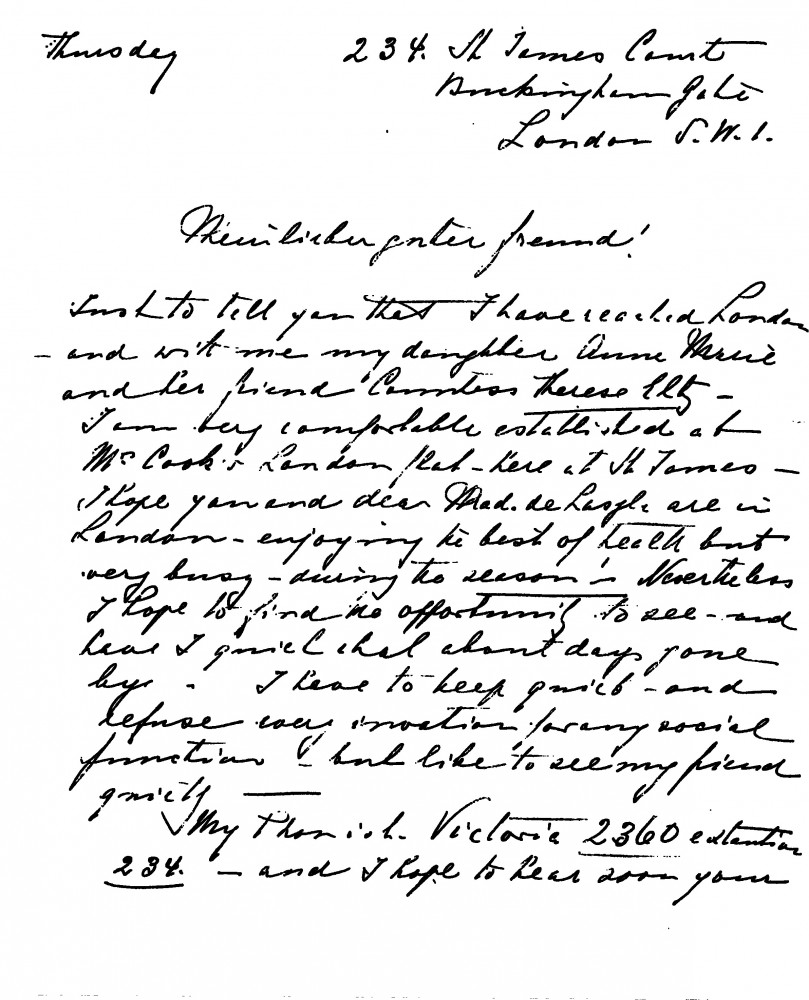 Thursday 234. St James Court
Buckingham Gate
London S.W.1.
Mein lieber guter freund!
Just to tell you that I have reached London
- and with me my daughter Anne Marie
and her friend Countess Therese Eltz -
I am very comfortable established at
Mc Cook's London flat - here at St James -
I hope you and dear Mad. de Laszlo are in
London - enjoying the best of health but
very busy - during the season! - Nevertheless
I hope to find the opportunity to see - and
have a quiet chat about days gone
bye - I have to keep quiet - and
refuse every invation for any social
function! - but like to see my friend
quietly
My Phon is h. Victoria 2360 extention
234. - and I hope to hear soon your